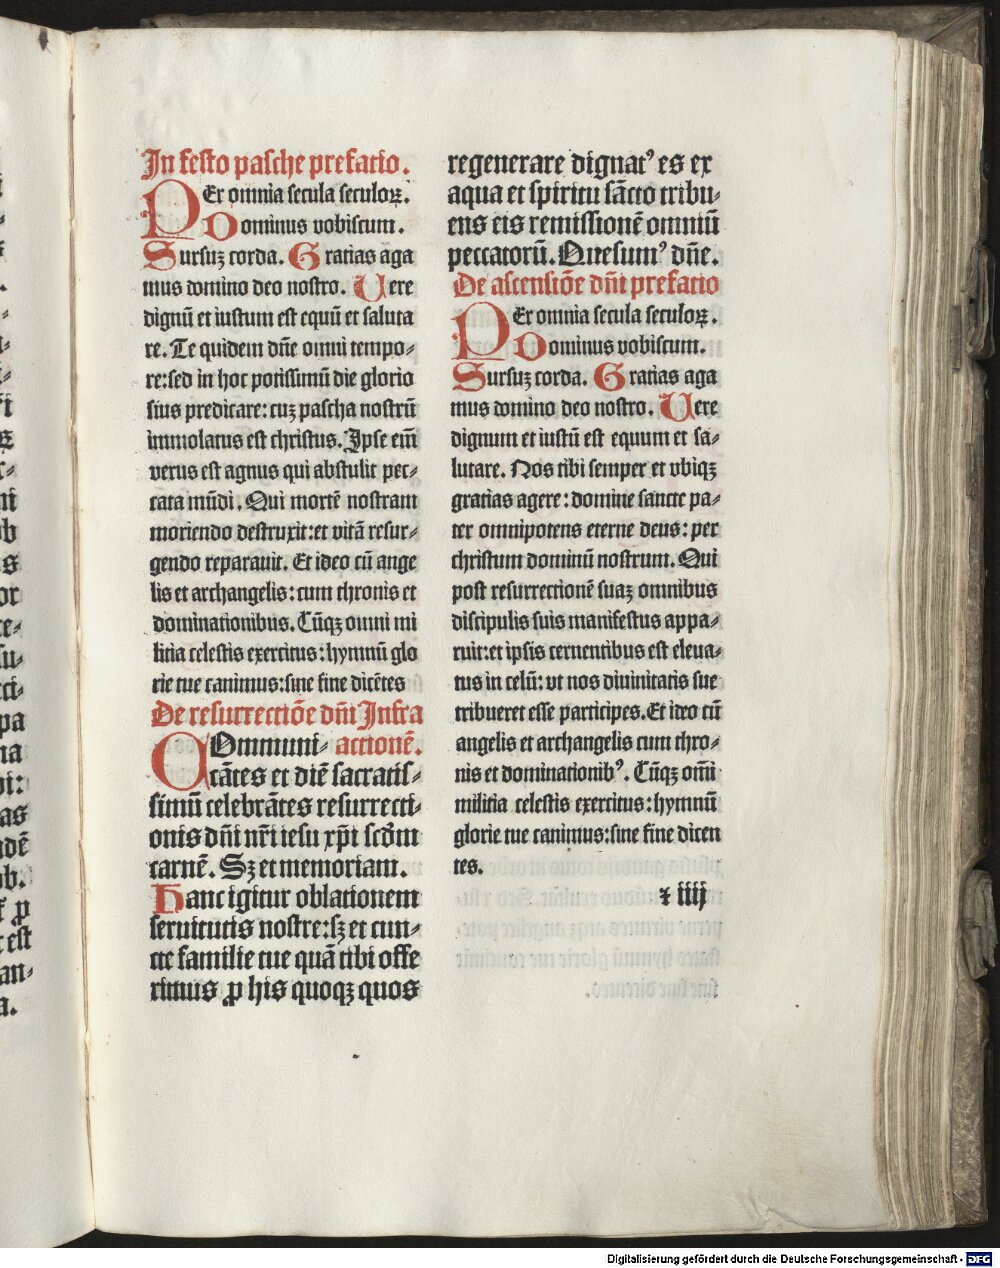 In festo pasche prefatio.
PEr omnia secula seculoꝝ.
Dominus vobiscum.
Sursuꝫ corda. Gratias aga
mus domino deo nostro. Uere
dignū et iustum est equū et saluta
re. Te quidem dn̄e omni tempo⸗
re:sed in hoc potissimū die glorio
sius predicare:cuꝫ pascha nostrū
immolatus est christus. Ipse em̄
verus est agnus qui abstulit pec⸗
cata mūdi. Qui mortē nostram
moriendo destruxit:et vitā resur⸗
gendo reparauit. Et ideo cū ange
lis et archangelis:cum thronis et
dominationibus. Cūqꝫ omni mi
litia celestis exercitus:hymnū glo
rie tue canimus:sine fine dicētes
De resurrectiōe dn̄i Infra
COmmuni⸗ actionē.
cātes et diē sacratis⸗
simū celebrātes resurrecti⸗
onis dn̄i nr̄i iesu xp̄i scd̄m
carnē. Sꝫ et memoriam.
Hanc igitur oblationem
seruitutis nostre:sꝫ et cun⸗
cte familie tue quā tibi offe
rimus ꝓ his quoqꝫ quos
regenerare dignatꝰ es ex
aqua et spiritu sācto tribu⸗
ens eis remissionē omniū
peccatorū. Quesumꝰ dn̄e.
De ascensiōe dn̄i prefatio
PEr omnia secula seculoꝝ.
Dominus vobiscum.
Sursuꝫ corda. Gratias aga
mus domino deo nostro. Uere
dignum et iustū est equum et sa⸗
lutare. Nos tibi semper et vbiqꝫ
gratias agere:domine sancte pa⸗
ter omnipotens eterne deus:per
christum dominū nostrum. Qui
post resurrectionē suaꝫ omnibus
discipulis suis manifestus appa⸗
ruit:et ipsis cernentibus est eleua⸗
tus in celū:vt nos diuinitatis sue
tribueret esse participes. Et ideo cū
angelis et archangelis cum thro⸗
nis et dominationibꝰ. Cūqꝫ om̄i
militia celestis exercitus:hymnū
glorie tue canimus:sine fine dicen
tes.
ꝛ iiij
Digitalisierung gefördert durch die Deutsche Forschungsgemeinschaft - DFG